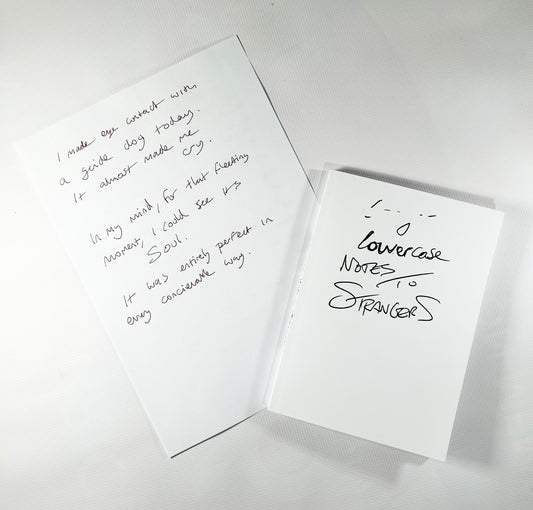 I made eye contact with
a guide dog today.
It almost made me
cry.
In my mind, for that fleeting
moment, I could see its
Soul.
It was entirely perfect in
every concievable way.
lowercase
NOTES/TO
STRANGERS